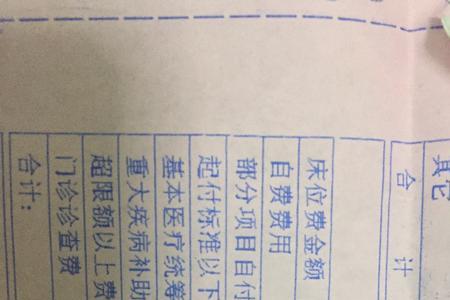 其它
合 计
床位费金额
自费费用
部分项目自付
起付标准以下
基本医疗统筹
重大疾病补助
超限额以上费
门诊诊查费
合计：